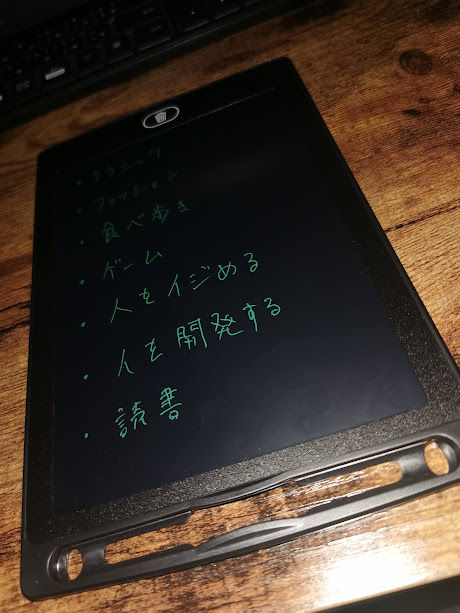 ・クラシック
・ファッション
・食べ歩き
・ゲーム
・人をイジめる
・人を開発する
・読書